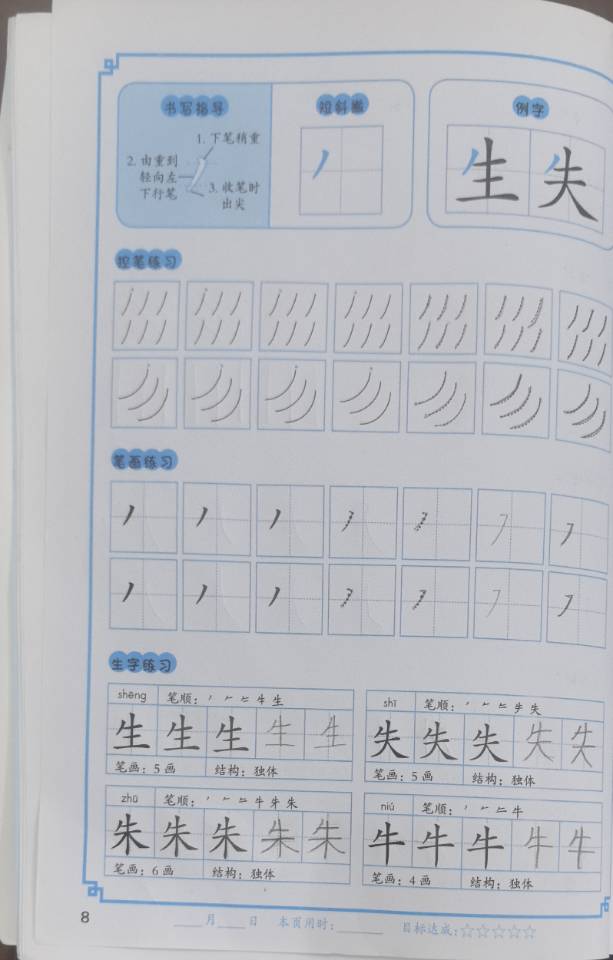 书写指导
1. 下笔稍重
2. 由重到
轻向左
下行笔
3. 收笔时
出尖
短斜撇
例字
生 失
控笔练习
笔画练习
生字练习
shēng 笔顺：丿 𠂉 牛 生
生 生 生 生 生
笔画：5画 结构：独体
shī 笔顺：丿 𠂉 失
失 失 失 失 失
笔画：5画 结构：独体
zhū 笔顺：丿 𠂉 牛 朱
朱 朱 朱 朱 朱
笔画：6画 结构：独体
niú 笔顺：丿 𠂉 牛
牛 牛 牛 牛 牛
笔画：4画 结构：独体
8
____月____日 本页用时：________ 目标达成：☆☆☆☆☆